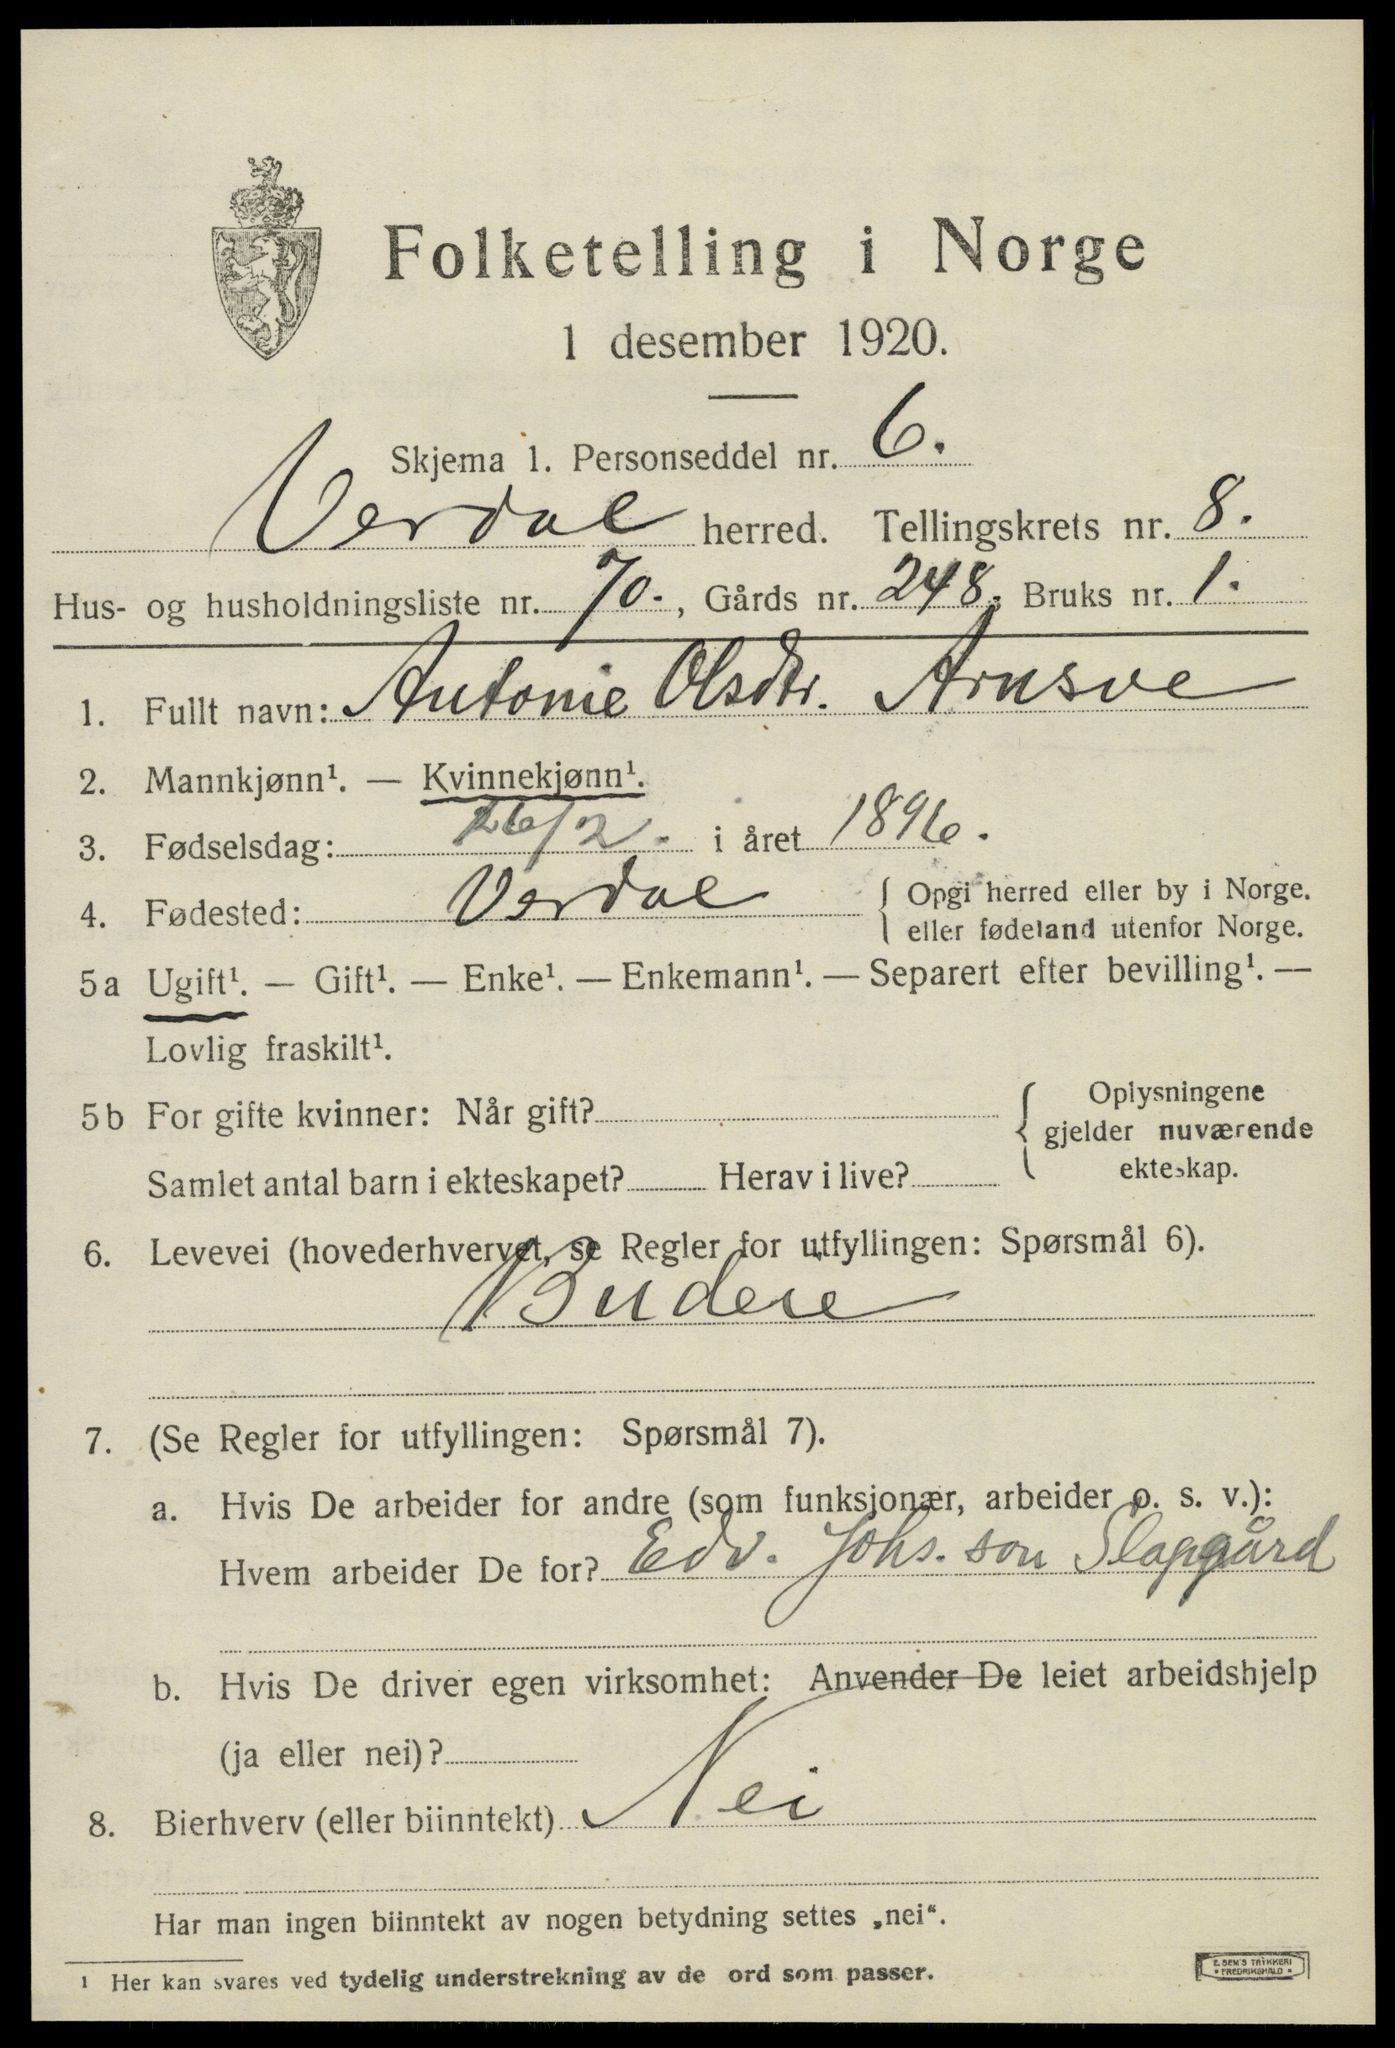 Folketelling i Norge
1 desember 1920.
Skjema 1. Personseddel nr. 6.
Verdal herred. Tellingskrets nr. 8.
Hus- og husholdningsliste nr. 70., Gårds nr. 248, Bruks nr. 1.
1. Fullt navn: Antonie Olsdtr. Arnsve
2. Mannkjønn¹. — Kvinnekjønn¹.
3. Fødselsdag: 26/2. i året 1896.
4. Fødested: Verdal { Opgi herred eller by i Norge.
eller fødeland utenfor Norge.
5a Ugift¹. — Gift¹. — Enke¹. — Enkemann¹. — Separert efter bevilling¹. —
Lovlig fraskilt¹.
5b For gifte kvinner: Når gift? { Oplysningene
gjelder nuværende
ekteskap.
Samlet antal barn i ekteskapet? Herav i live?
6. Levevei (hovederhvervet, se Regler for utfyllingen: Spørsmål 6).
Budeie
7. (Se Regler for utfyllingen: Spørsmål 7).
a. Hvis De arbeider for andre (som funksjonær, arbeider o. s. v.):
Hvem arbeider De for? Edv. Johs. son Slapgård
b. Hvis De driver egen virksomhet: Anvender De leiet arbeidshjelp
(ja eller nei)?
8. Bierhverv (eller biinntekt) Nei
Har man ingen biinntekt av nogen betydning settes „nei“.
¹ Her kan svares ved tydelig understrekning av de ord som passer.
E. SEM'S TRYKKERI
• FREDRIKSHALD •